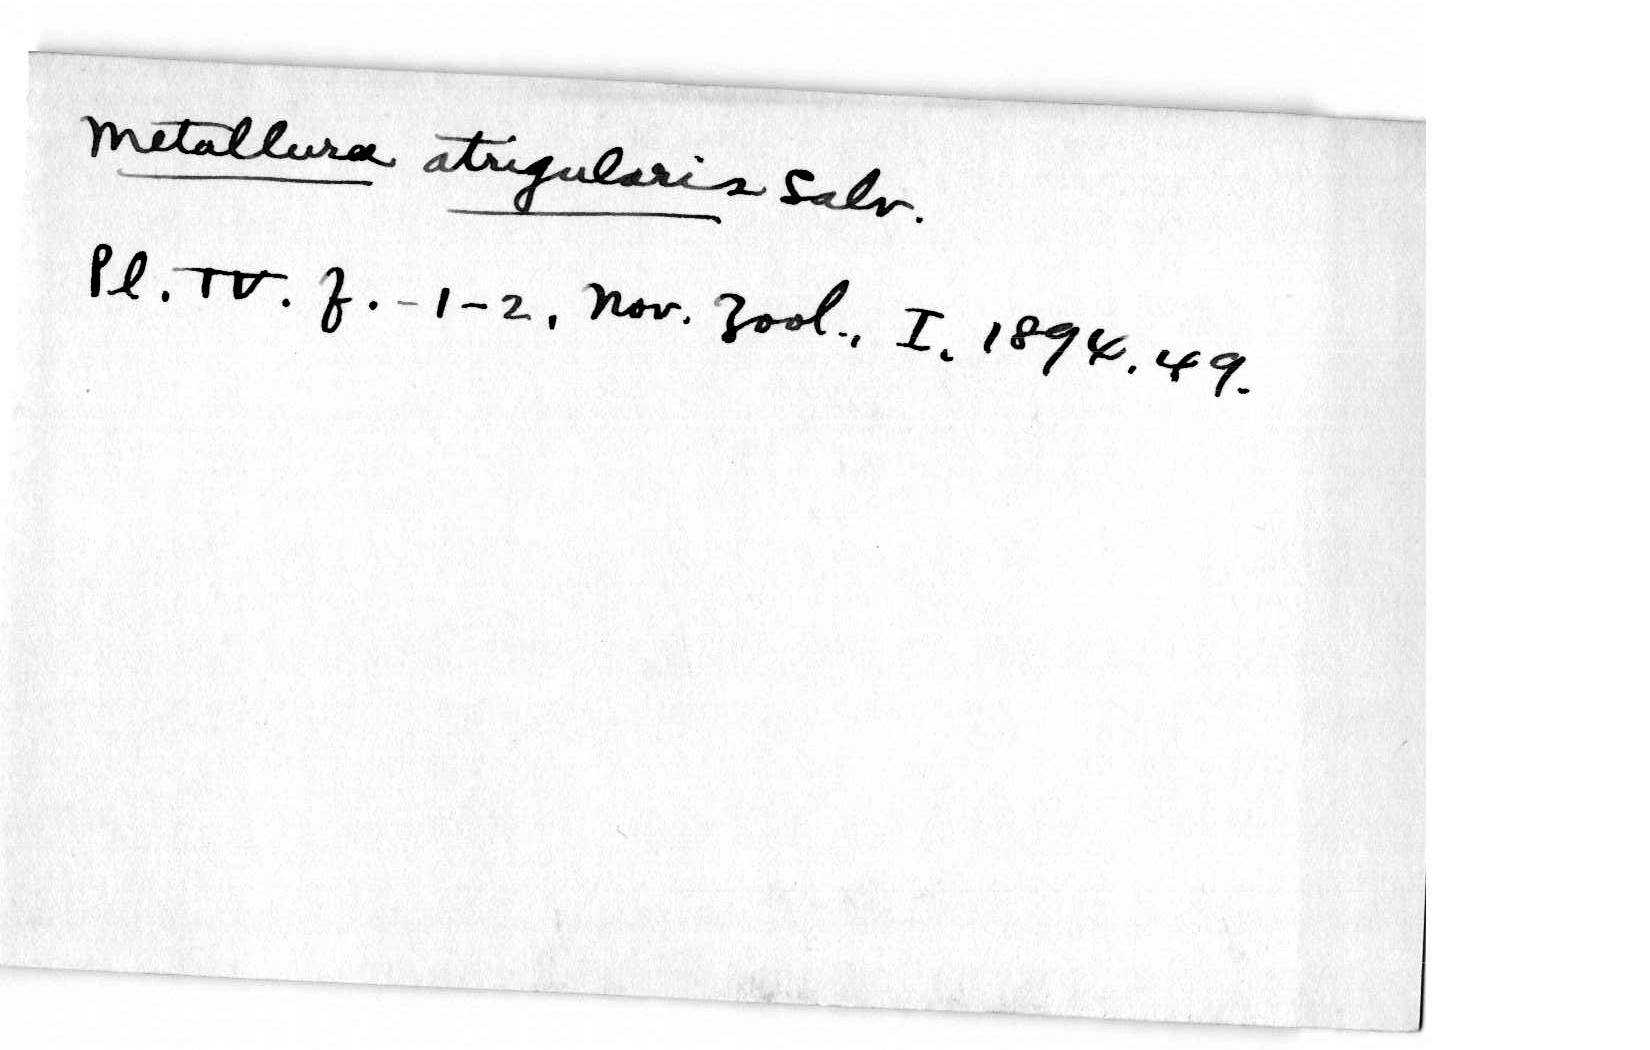 Metallura atrigularis Salv.
Pl. IV. f. -1-2, Nov. Zool., I. 1894. 49.